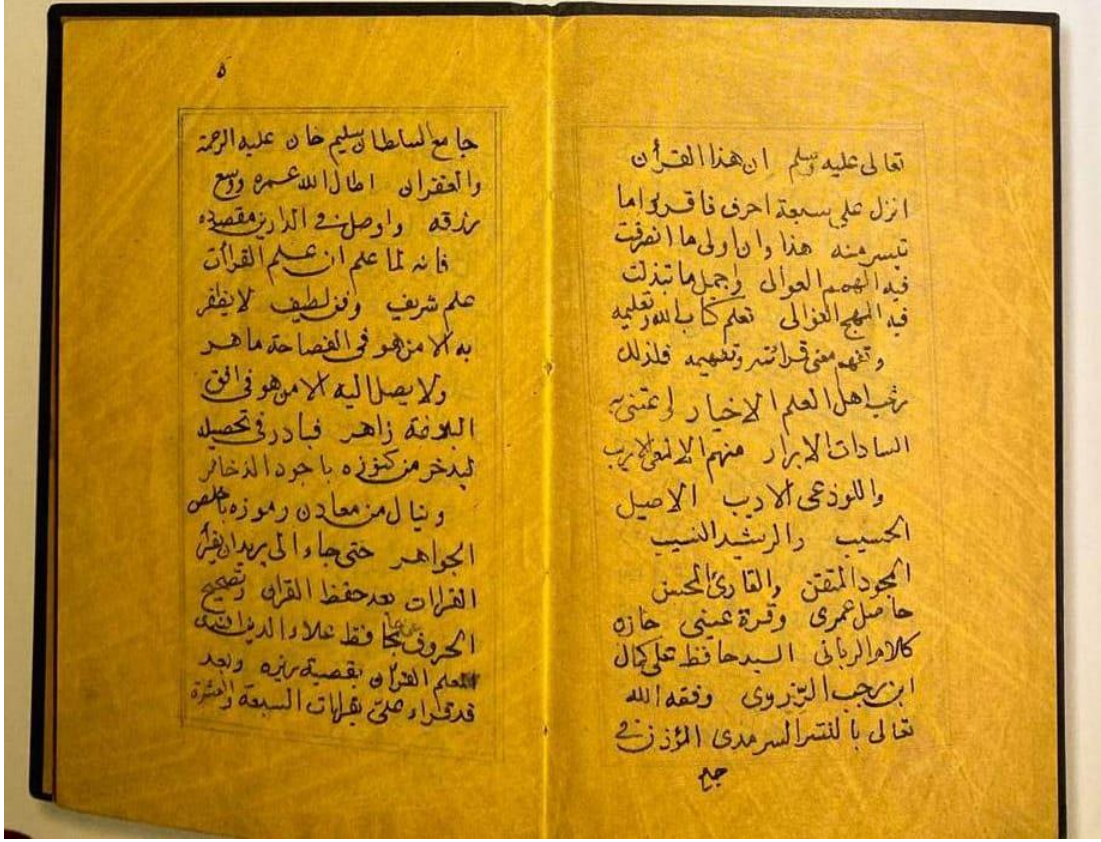 تعالى عليه وسلم ان هذا القرأن
انزل على سبعة احرف فاقرؤا ما
تيسر منه هذا وان اولى ما انصرفت
فيه الهمم العوالى واجمل ما تبذلت
فيه المهج الغوالى تعلم كتاب الله وتعليمه
وتفهم معنى قرائته وتفهيمه فلذلك
رغب اهل العلم الاخيار لا عتنى به
السادات الابرار منهم الالمعى الاريب
واللوذعى الاديب الاصيل
الحسيب والرشيد النسيب
المجود المتقن والقارئ المحسن
حاصل عمرى وقرة عينى حازه
كلام الربانى السيد حافظ على كمال
ابن رجب الرزوى وفقه الله
تعالى بالنشر السرمدى المؤذن فى
جامع
٥
جامع السلطان سليم خان عليه الرحمة
والغفران اطال الله عمره ووسع
رزقه واوصل فى الدارين مقصده
فانه لما علم ان علم القرأت
علم شريف وفن لطيف لا يظفر
به الا من هو فى الفصاحة ماهر
ولا يصل اليه الا من هو فى افق
البلاغة زاهر فبادر فى تحصيله
ليدخر من كنوزه باجود الذخائر
وينال من معادن رموزه باخلص
الجواهر حتى جاء الى يريد ان يقرأ
القرات بعد حفظ القران وتصحيح
الحروف عن حافظ علاء الدين افندى
المعلم القران بقصبة ريزه وبعد
قد قراء على بقرات السبعة والعشرة